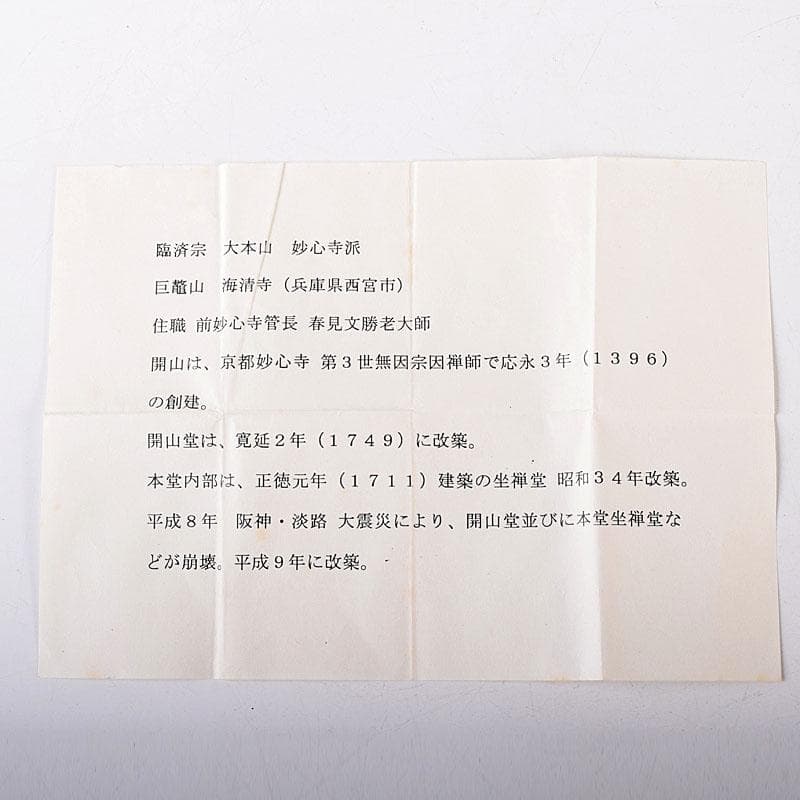 臨済宗　大本山　妙心寺派
巨鼇山　海清寺（兵庫県西宮市）
住職 前妙心寺管長 春見文勝老大師
開山は、京都妙心寺 第３世無因宗因禅師で応永３年（１３９６）
の創建。
開山堂は、寛延２年（１７４９）に改築。
本堂内部は、正徳元年（１７１１）建築の坐禅堂 昭和３４年改築。
平成８年　阪神・淡路 大震災により、開山堂並びに本堂坐禅堂な
どが崩壊。平成９年に改築。